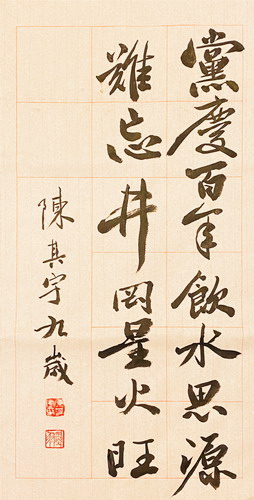 黨慶百年飲水思源
難忘井岡星火旺
陳其宇九歲